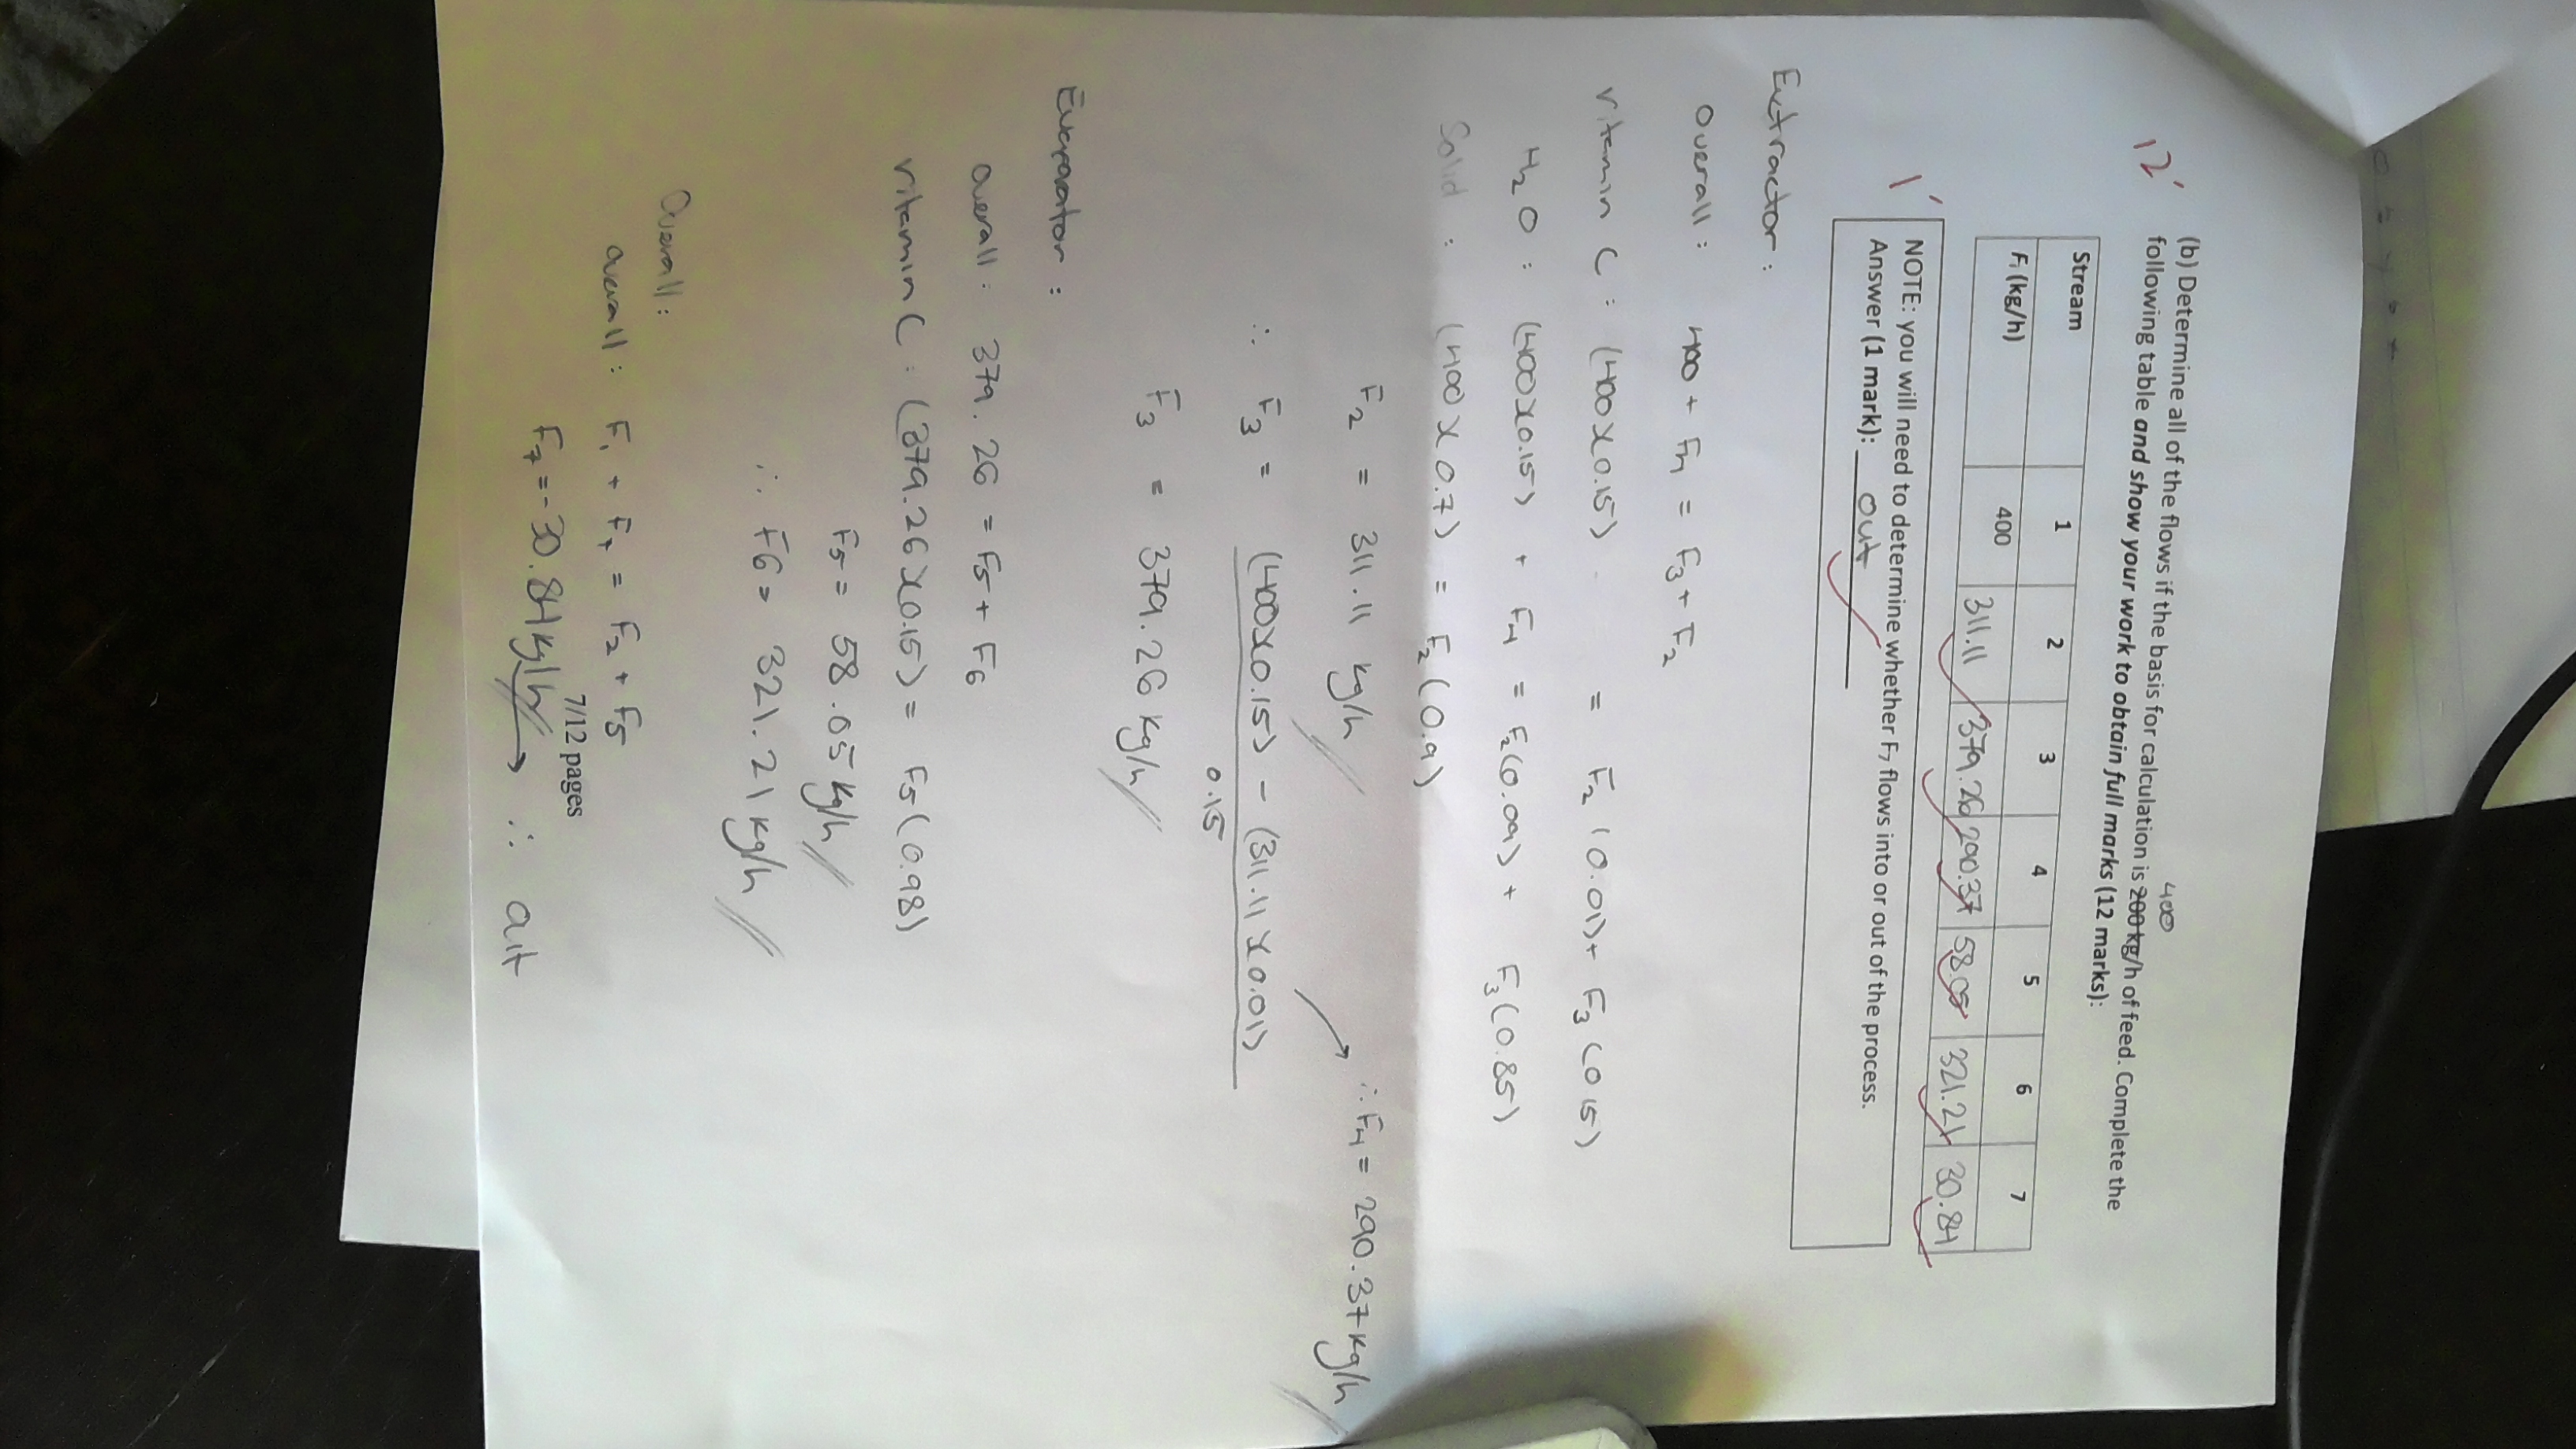 12'
(b) Determine all of the flows if the basis for calculation is 200 kg/h of feed. Complete the
400
following table and show your work to obtain full marks (12 marks):
Stream 1 2 3 4 5 6 7
Fi (kg/h) 400 311.11 379.26 290.37 58.05 321.21 30.84
1'
NOTE: you will need to determine whether F7 flows into or out of the process.
Answer (1 mark): out
Extractor:
Overall: 400 + F4 = F3 + F2
vitamin C: (400 x 0.15) = F2 (0.01) + F3 (0.15)
H2O: (400x0.15) + F4 = F2(0.09) + F3(0.85)
Solid: (400 x 0.7) = F2 (0.9)
F2 = 311.11 kg/h
∴ F4 = 290.37 kg/h
∴ F3 = (400x0.15) - (311.11 x 0.01)
0.15
F3 = 379.26 kg/h
Evaporator:
overall: 379.26 = F5 + F6
vitamin C: (379.26 x 0.15) = F5 (0.98)
F5 = 58.05 kg/h
∴ F6 = 321.21 kg/h
Overall:
overall: F1 + F7 = F2 + F5
F7 = -30.84 kg/h → ∴ out
7/12 pages